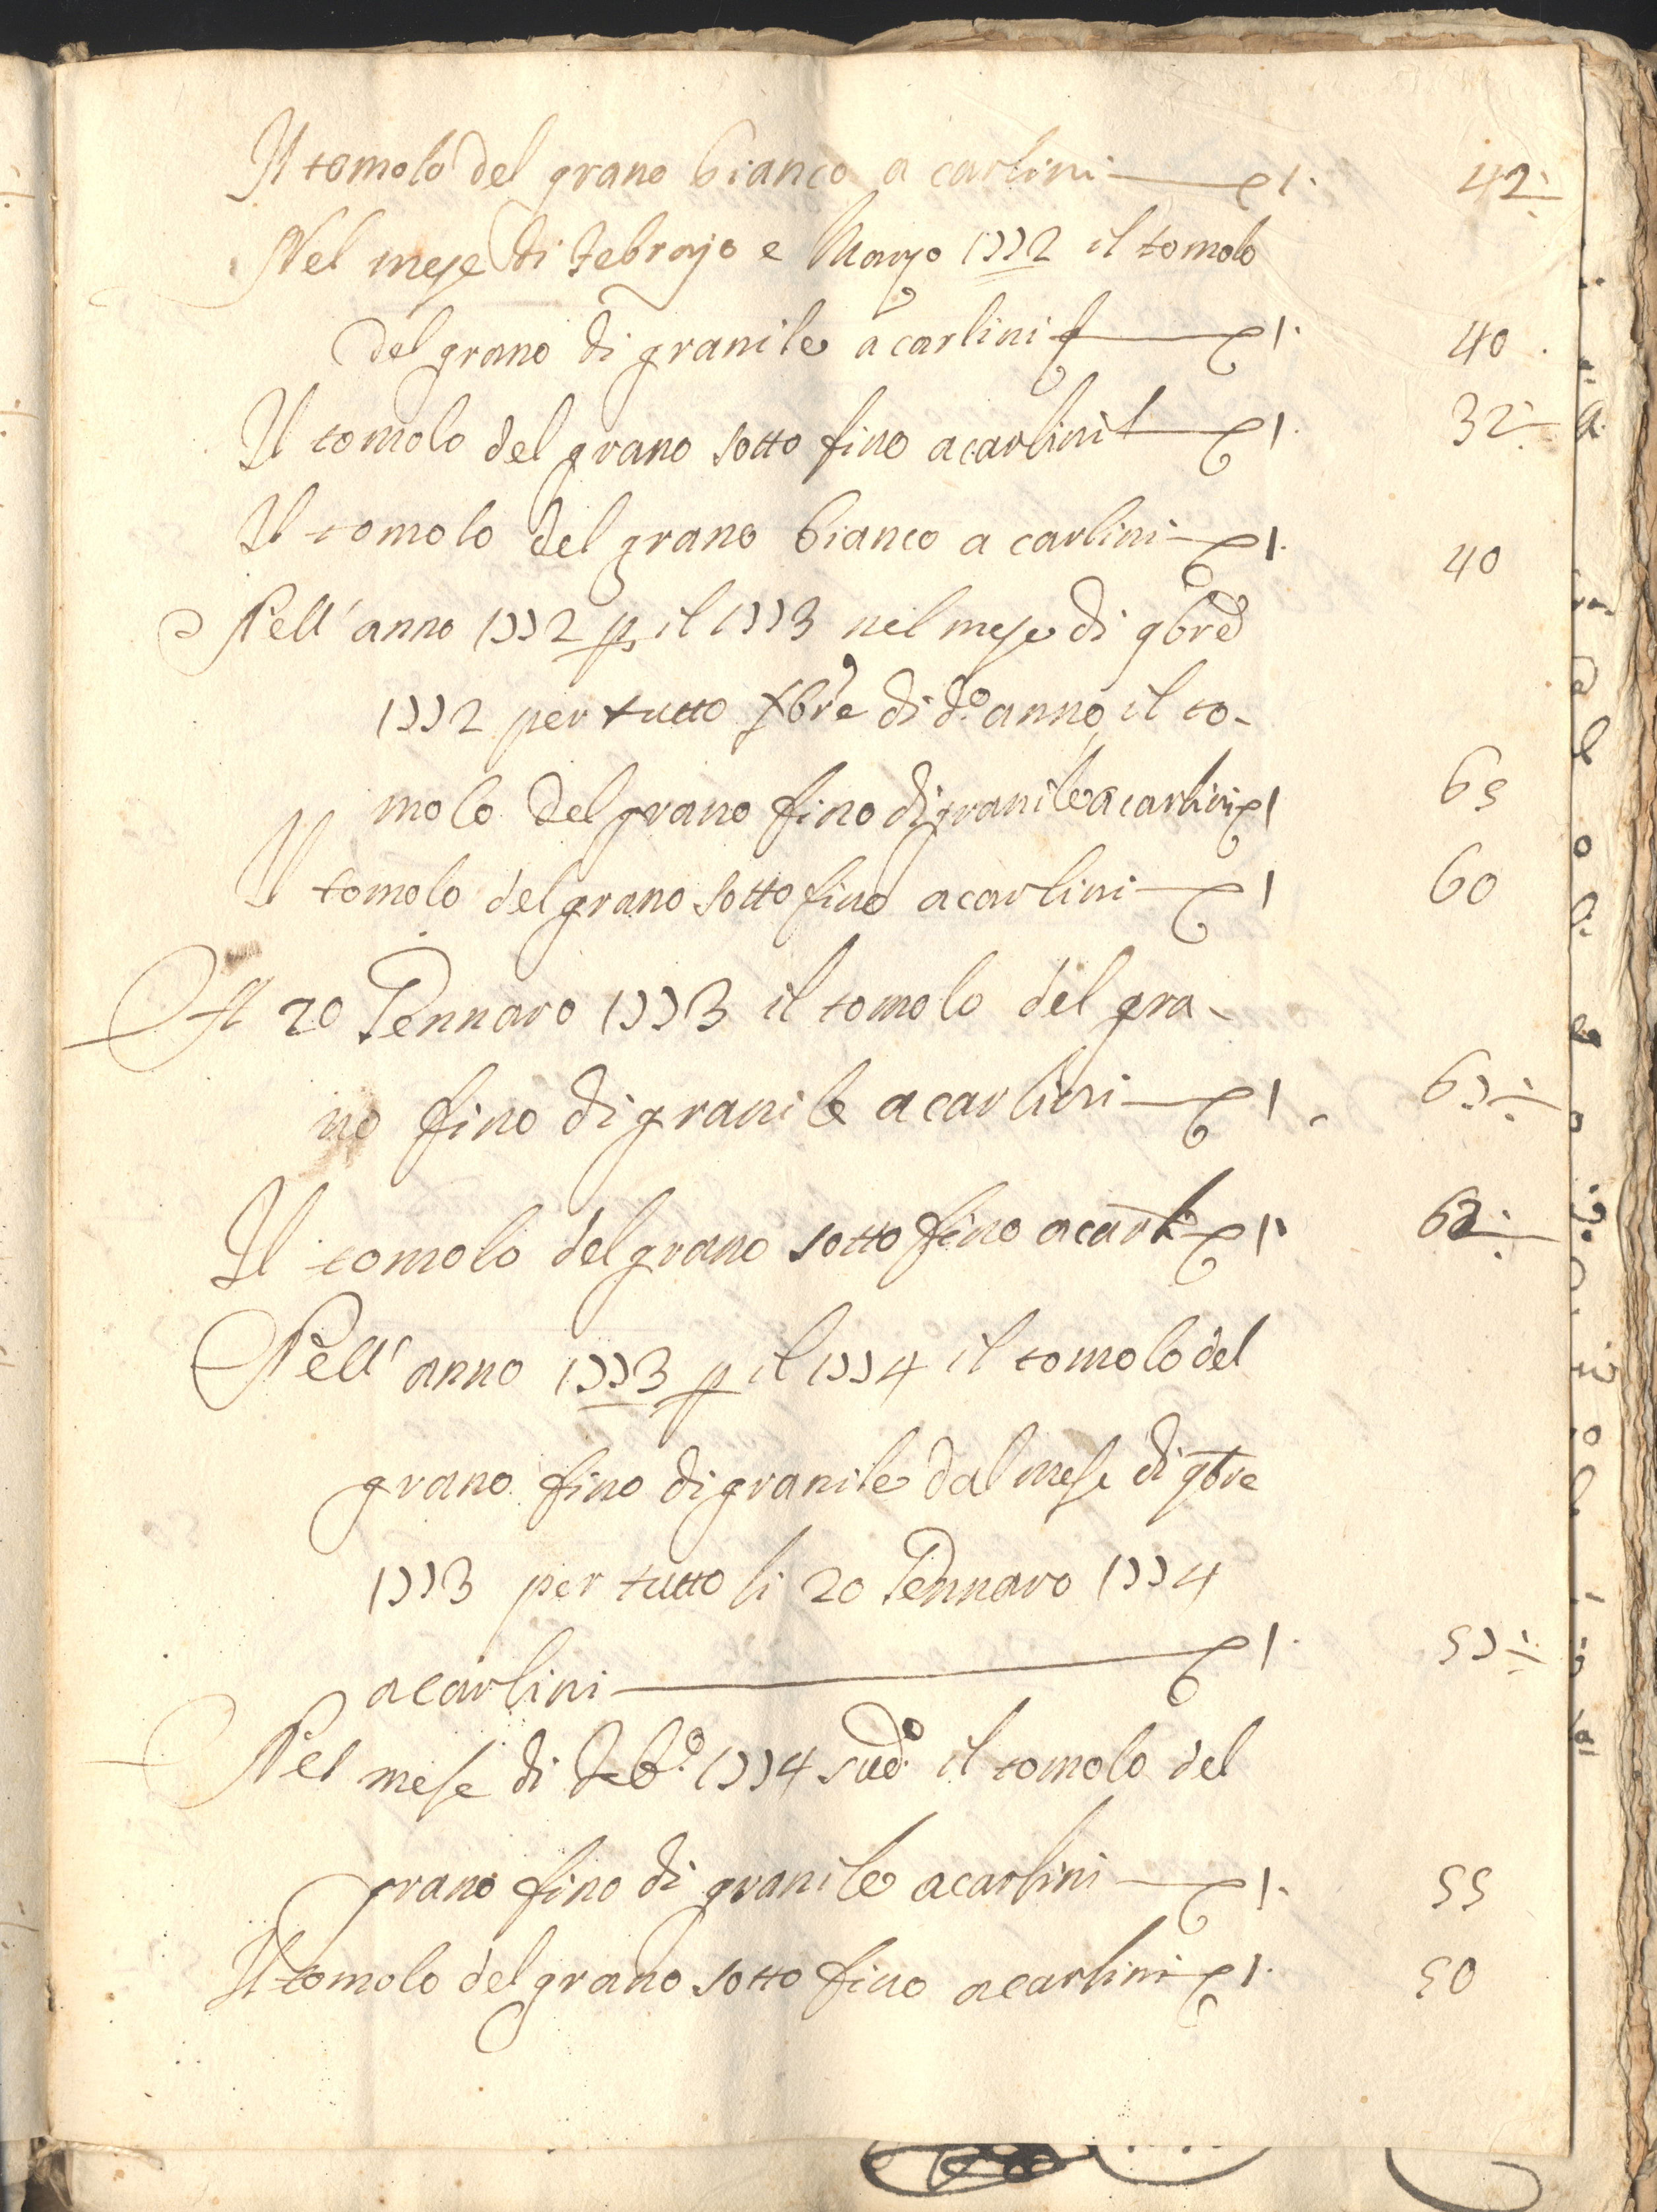 Il tomolo del grano bianco a carlini — 42:
Nel mese di Febrajo e Marzo 1772 il tomolo
del grano di granile a carlini — 40.
Il tomolo del grano sotto fino a carlini — 32:
Il tomolo del grano bianco a carlini — 40
Nell' anno 1772 p il 1773 nel mese di 9bre
1772 per tutto Xbre di d.º anno il to-
molo del grano fino di granile a carlini 65
Il tomolo del grano sotto fino a carlini — 60
A 20 Gennaro 1773 il tomolo del gra-
no fino di granile a carlini — 67:
Il tomolo del grano sotto fino a carl: 62:
Nell' anno 1773 p il 1774 il tomolo del
grano fino di granile dal mese di 9bre
1773 per tutto li 20 Gennaro 1774
a carlini — 57:
Nel mese di Feb.º 1774 sud.º il tomolo del
grano fino di granile a carlini — 55
Il tomolo del grano sotto fino a carlini 50